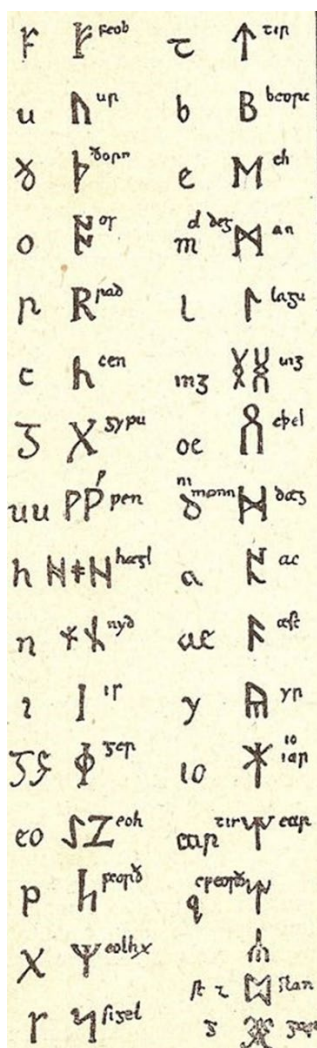 f ᚠ feoh
u ᚢ ur
ð ᚦ ðorn
o ᚩ os
r ᚱ rað
c ᚳ cen
ᵹ ᚷ ᵹyfu
uu ᚹᚹ ƿ ƿen
h ᚻᚼᚻ hæᵹl
n ᚾ nyð
i ᛁ is
ᵹ ᛄ ᵹer
eo ᛇ eoh
p ᛈ peorð
x ᛉ eolhx
s ᛋ siᵹel
t ᛏ tir
b ᛒ beorc
e ᛖ eh
m d deᵹ ᛗ an
l ᛚ laᵹu
inᵹ ᛝ inᵹ
oe ᛟ eþel
ð mann ᛞ dæᵹ
a ᚪ ac
ae ᚫ æsc
y ᚣ yr
io ᛡ io iar
ear tir ᛠ ear
q cweorð
st z ᛥ stan
ᵹ